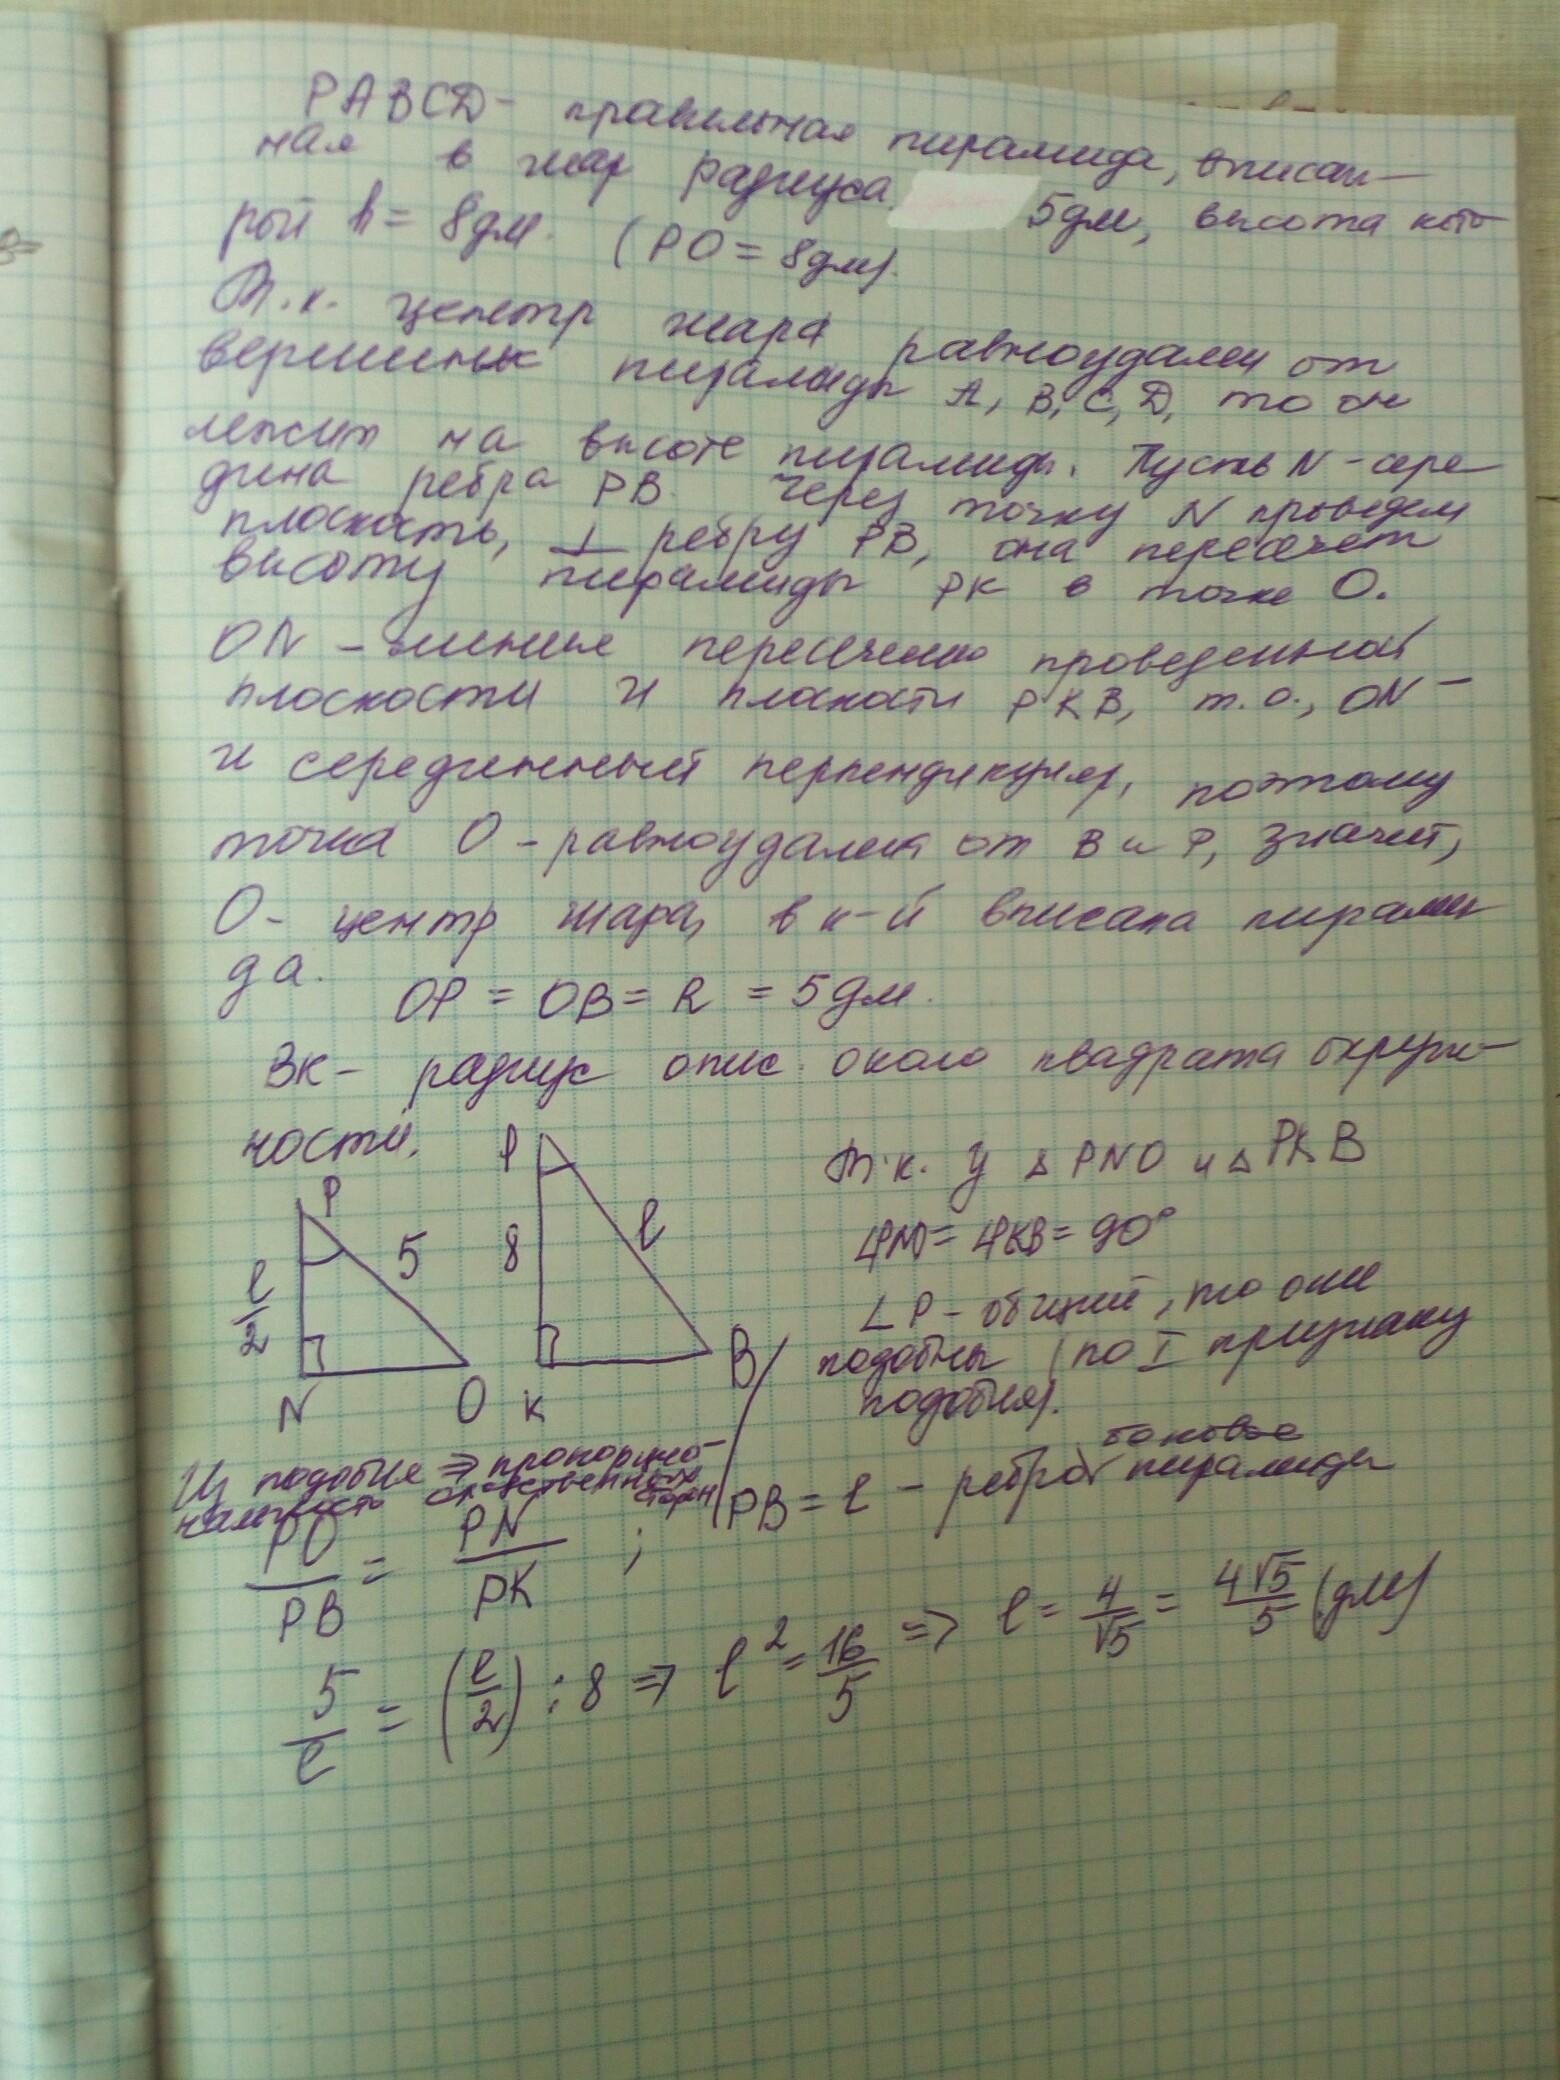 PABCD - правильная пирамида, вписан-
ная в шар радиуса 5дм, высота кото-
рой h = 8дм. (PO = 8дм).
Т.к. центр шара равноудален от
вершины пирамиды A, B, C, D, то он
лежит на высоте пирамиды. Пусть N - сере-
дина ребра PB. Через точку N проведем
плоскость, ⊥ ребру PB, она пересечет
высоту пирамиды PK в точке O.
ON - линия пересечения проведенной
плоскости и плоскости PKB, т.о., ON -
и серединный перпендикуляр, поэтому
точка O - равноудалена от B и P, значит,
O - центр шара, в к-й вписана пирами
да.
OP = OB = R = 5дм.
BK - радиус опис. около квадрата окруж-
ности.
P
5
l/2
N
O
P
8
l
K
B
Т.к. у △ PNO и △ PKB
∠PNO = ∠PKB = 90°
∠P - общий, то они
подобны (по I признаку
подобия).
Из подобия => пропорцио-
нальность
сторон
PO/PB = PN/PK ;
PB = l - ребро боковое
пирамиды
5/l = (l/2) : 8 => l² = 16/5 => l = 4/√5 = 4√5/5 (дм)